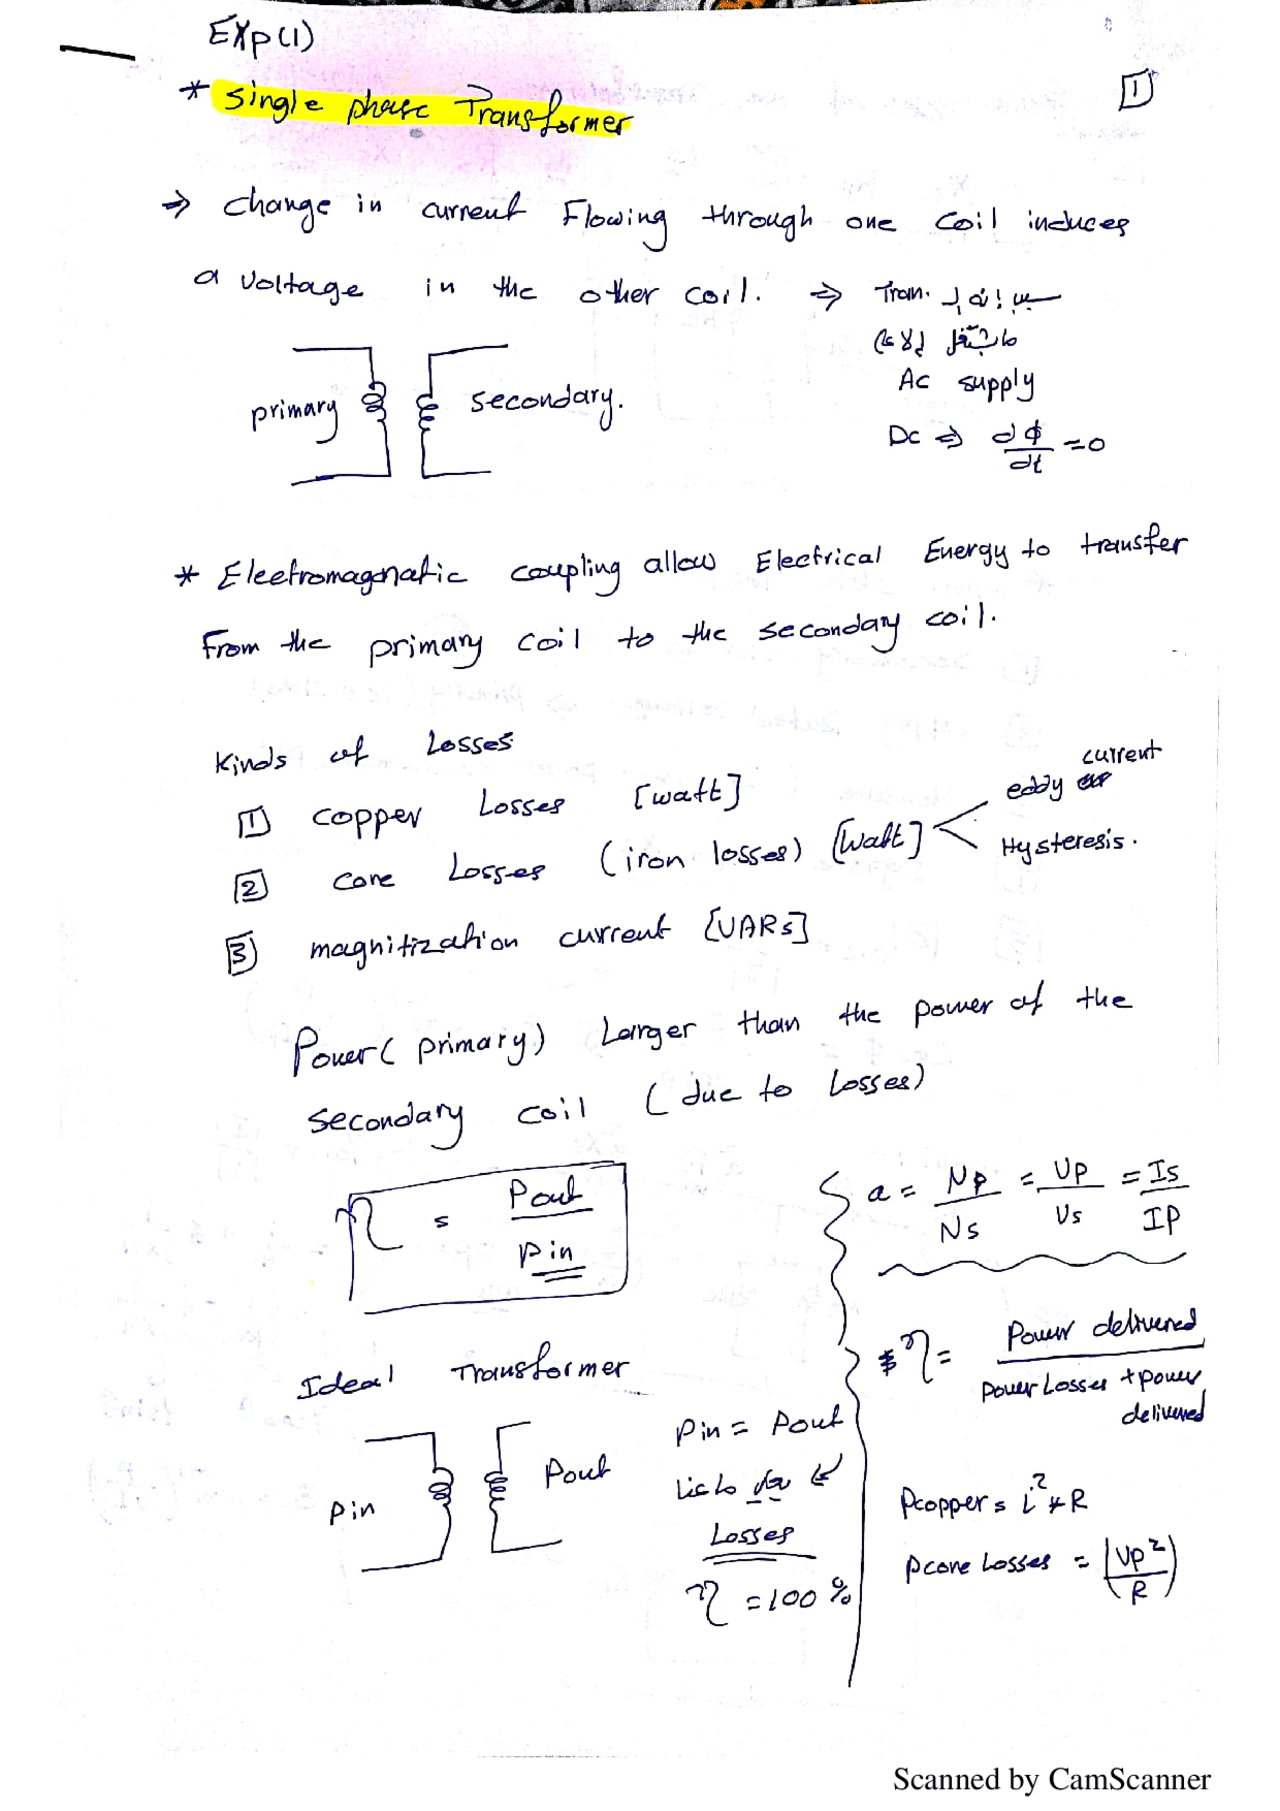 EXP(1)
* single phase Transformer
1
⇒ change in current Flowing through one coil induces
a voltage in the other coil. ⇒ Tran.
Ac supply
Dc ⇒ dϕ/dt = 0
primary
secondary.
* Electromagnatic coupling allow Electrical Energy to transfer
From the primary coil to the secondary coil.
Kinds of Losses
1 copper Losses [watt]
2 core Losses (iron losses) [Watt]
eddy current
Hysteresis.
3 magnitization current [VARs]
Power (primary) Larger than the power of the
secondary coil (due to Losses)
η = Pout/Pin
a = Np/Ns = Vp/Vs = Is/IP
η = Power delivered / power Losses + power delivered
Ideal Transformer
Pin
Pout
Pin = Pout
Losses
η = 100 %
Pcopper = i² * R
Pcore Losses = (Vp²/R)
Scanned by CamScanner